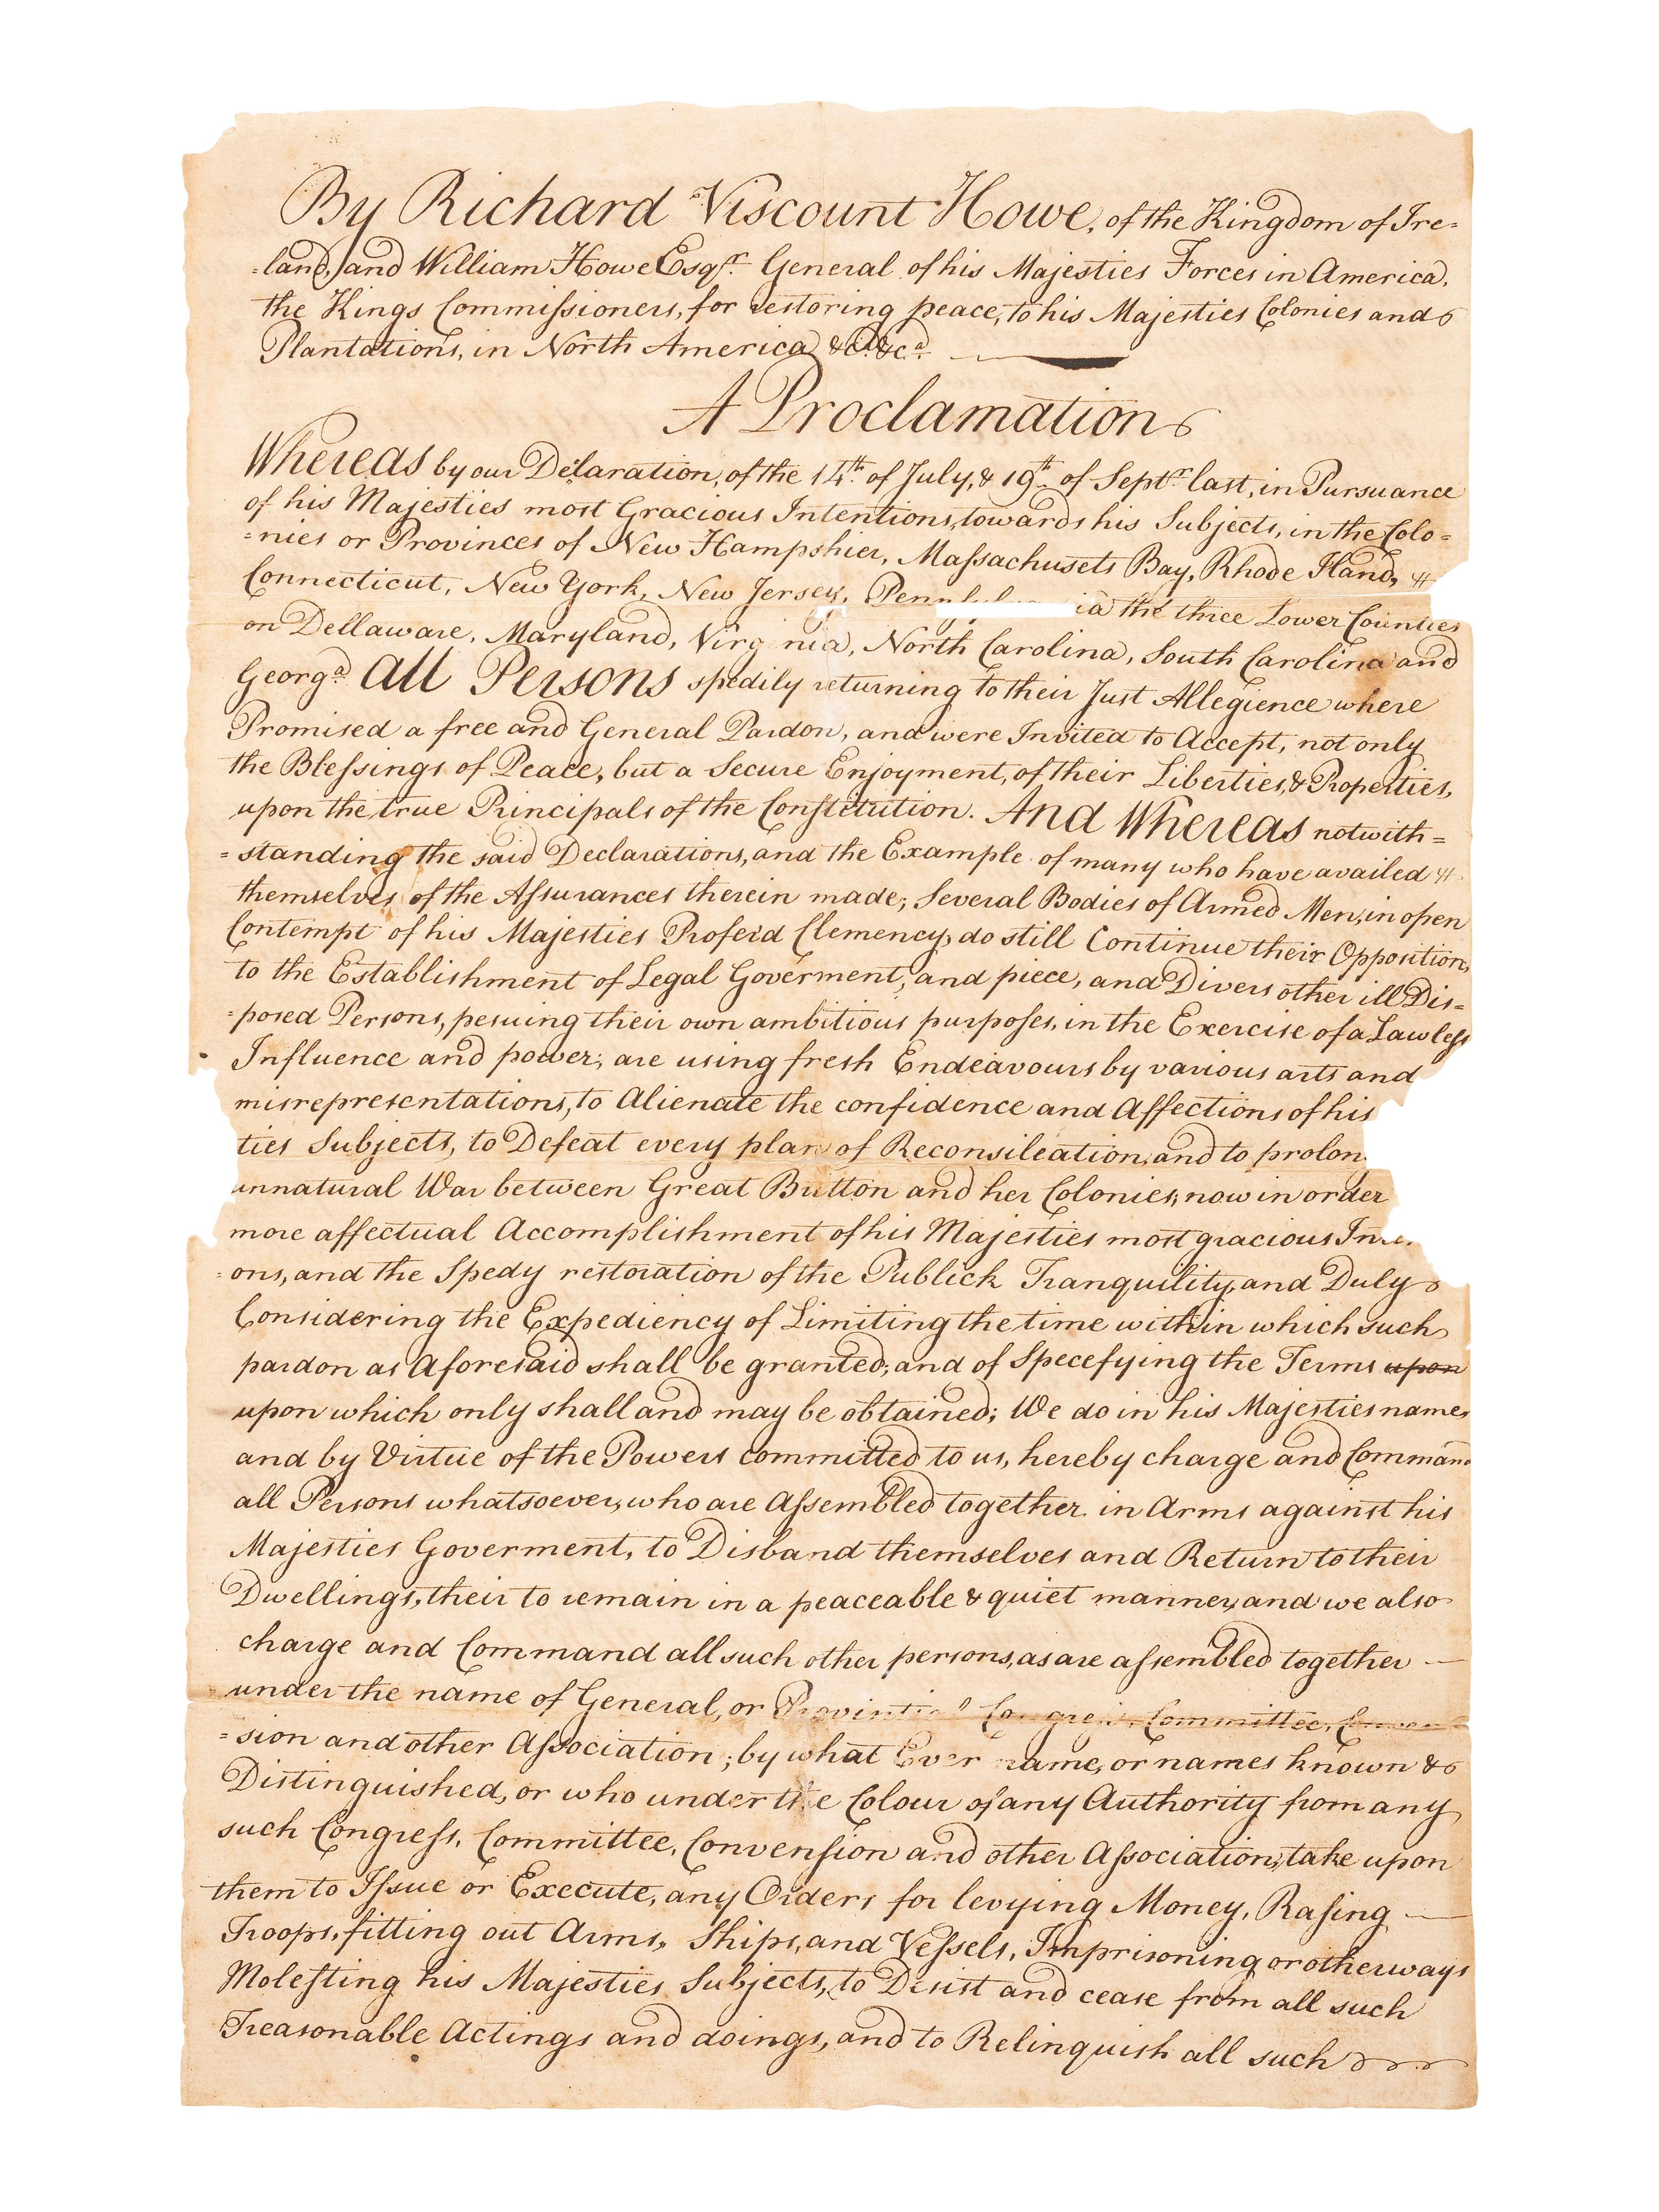 By Richard Viscount Howe, of the Kingdom of Ire=
=land, and William Howe Esqr. General of his Majesties Forces in America,
the Kings Commissioners, for restoring peace, to his Majesties Colonies and
Plantations, in North America &ca. &ca.
A Proclamation
Whereas by our Declaration, of the 14th of July, & 19th of Septr last, in Pursuance
of his Majesties most Gracious Intentions, towards his Subjects, in the Colo=
=nies or Provinces of New Hampshier, Massachusets Bay, Rhode Iland,
Connecticut, New York, New Jersey, the three Lower Counties
on Dellaware, Maryland, Virginia, North Carolina, South Carolina and
Georga. All Persons spedily returning to their Just Allegience where
Promised a free and General Pardon, and were Invited to Accept, not only
the Blessings of Peace, but a Secure Enjoyment, of their Liberties, & Properties,
upon the true Principals of the Constetution. And Whereas notwith=
=standing the said Declarations, and the Example of many who have availed
themselves of the Assurances therein made; Several Bodies of Armed Men, in open
Contempt of his Majesties Proferd Clemency, do still Continue their Opposition,
to the Establishment of Legal Goverment, and piece, and Divers other ill Dis=
=posed Persons, pesuing their own ambitious purposes, in the Exercise of a Lawless
Influence and power; are using fresh Endeavours by various arts and
misrepresentations, to Alienate the confidence and Affections of his
ties Subjects, to Defeat every plan of Reconsileation, and to prolon
unnatural War between Great Britton and her Colonies, now in order
more affectual Accomplishment of his Majesties most gracious
=ons, and the Spedy restoration of the Publick Tranquility, and Duly
Considering the Expediency of Limiting the time within which such
pardon as Aforesaid shall be granted; and of Specefying the Terms upon
upon which only shall and may be obtained; We do in his Majesties name,
and by Virtue of the Powers committed to us, hereby charge and Command
all Persons whatsoever, who are Assembled together in Arms against his
Majesties Goverment, to Disband themselves and Return to their
Dwellings, their to remain in a peaceable & quiet manner, and we also
charge and Command all such other persons, as are assembled together
under the name of General, or Committee,
=sion and other Association; by what Ever name, or names known &
Distinguished, or who under the Colour of any Authority from any
such Congress, Committee, Convension and other Association, take upon
them to Issue or Execute, any Orders for levying Money, Rasing
Troops, fitting out Arms, Ships, and Vessels, Imprisoning or otherways
Molesting his Majesties Subjects, to Desist and cease from all such
Treasonable Actings and doings, and to Relinquish all such